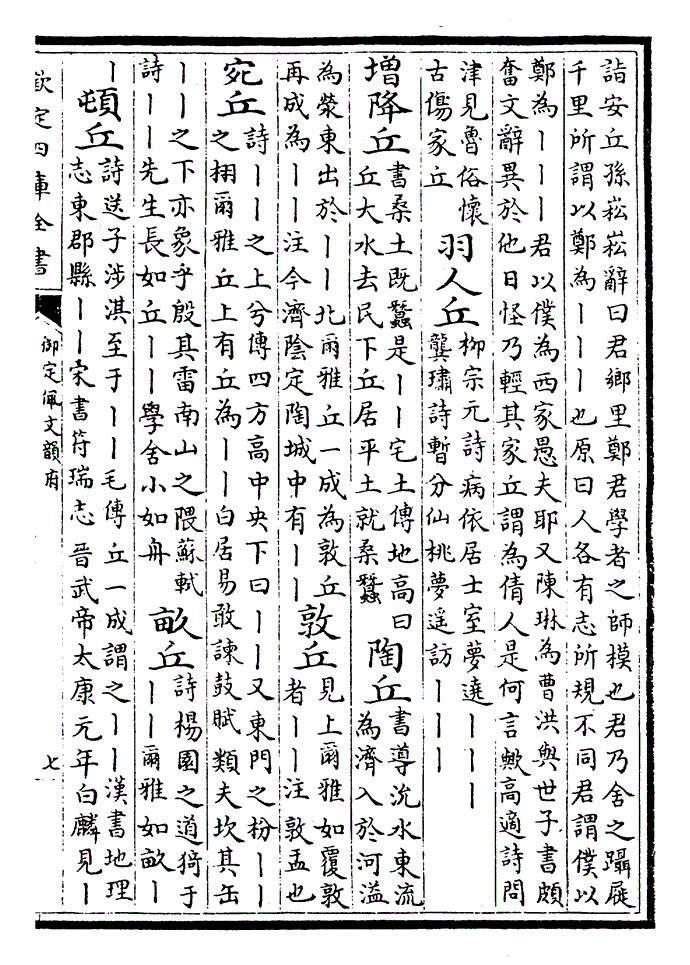 詣安丘孫崧崧辭曰君鄉里鄭君學者之師模也君乃舍之躡屣
千里所謂以鄭為丨丨丨也原曰人各有志所規不同君謂僕以
鄭為丨丨丨君以僕為西家愚夫耶又陳琳為曹洪與世子書頗
奮文辭異於他日怪乃輕其家丘謂為倩人是何言歟高適詩問
津見魯俗懷
古傷家丘
羽人丘
柳宗元詩病依居士室夢遶丨丨丨
龔璛詩暫分仙桃夢遥訪丨丨丨
增降丘
書桑土既蠶是丨丨宅土傳地高曰
丘大水去民下丘居平土就桑蠶
陶丘
書導沇水東流
為濟入於河溢
為滎東出於丨丨北爾雅丘一成為敦丘
再成為丨丨注今濟陰定陶城中有丨丨
敦丘
見上爾雅如覆敦
者丨丨注敦盂也
宛丘
詩丨丨之上兮傳四方高中央下曰丨丨又東門之枌丨丨
之栩爾雅丘上有丘為丨丨白居易敢諫鼓賦類夫坎其缶
丨丨之下亦象乎殷其雷南山之隈蘇軾
詩丨丨先生長如丘丨丨學舍小如舟
畝丘
詩楊園之道猗于
丨丨爾雅如畝丨
丨
頓丘
詩送子涉淇至于丨丨毛傳丘一成謂之丨丨漢書地理
志東郡縣丨丨宋書符瑞志晉武帝太康元年白麟見丨
欽定四庫全書
御定佩文韻府
七